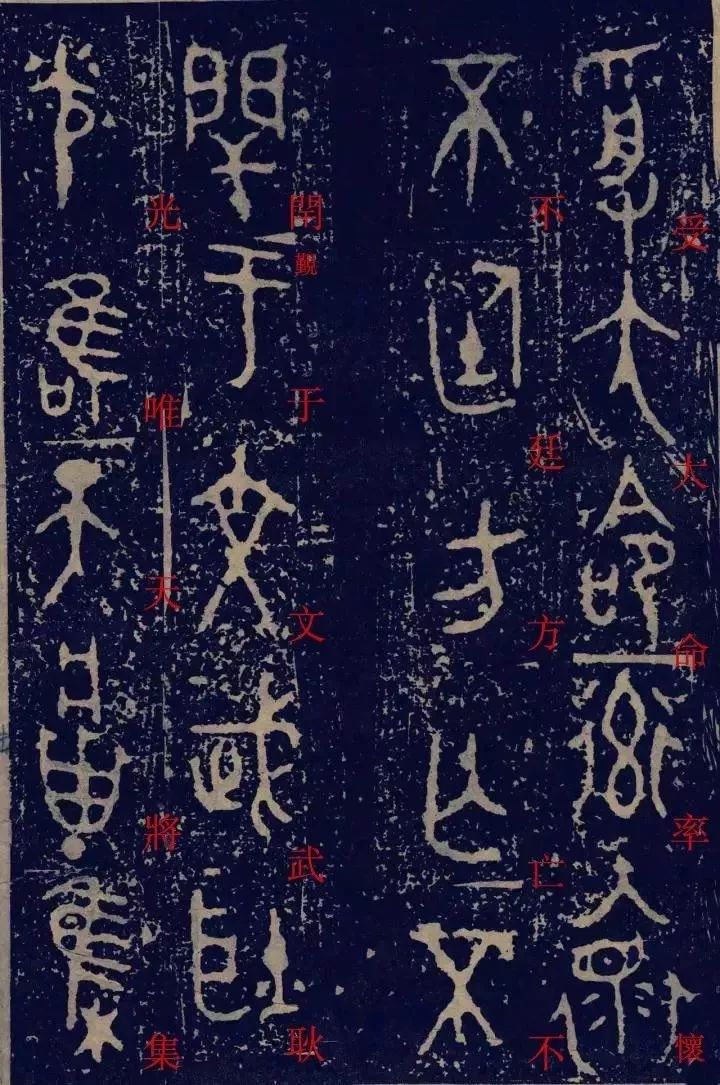 受大命率懷
不廷方亡不
閈覲于文武耿
光唯天將集